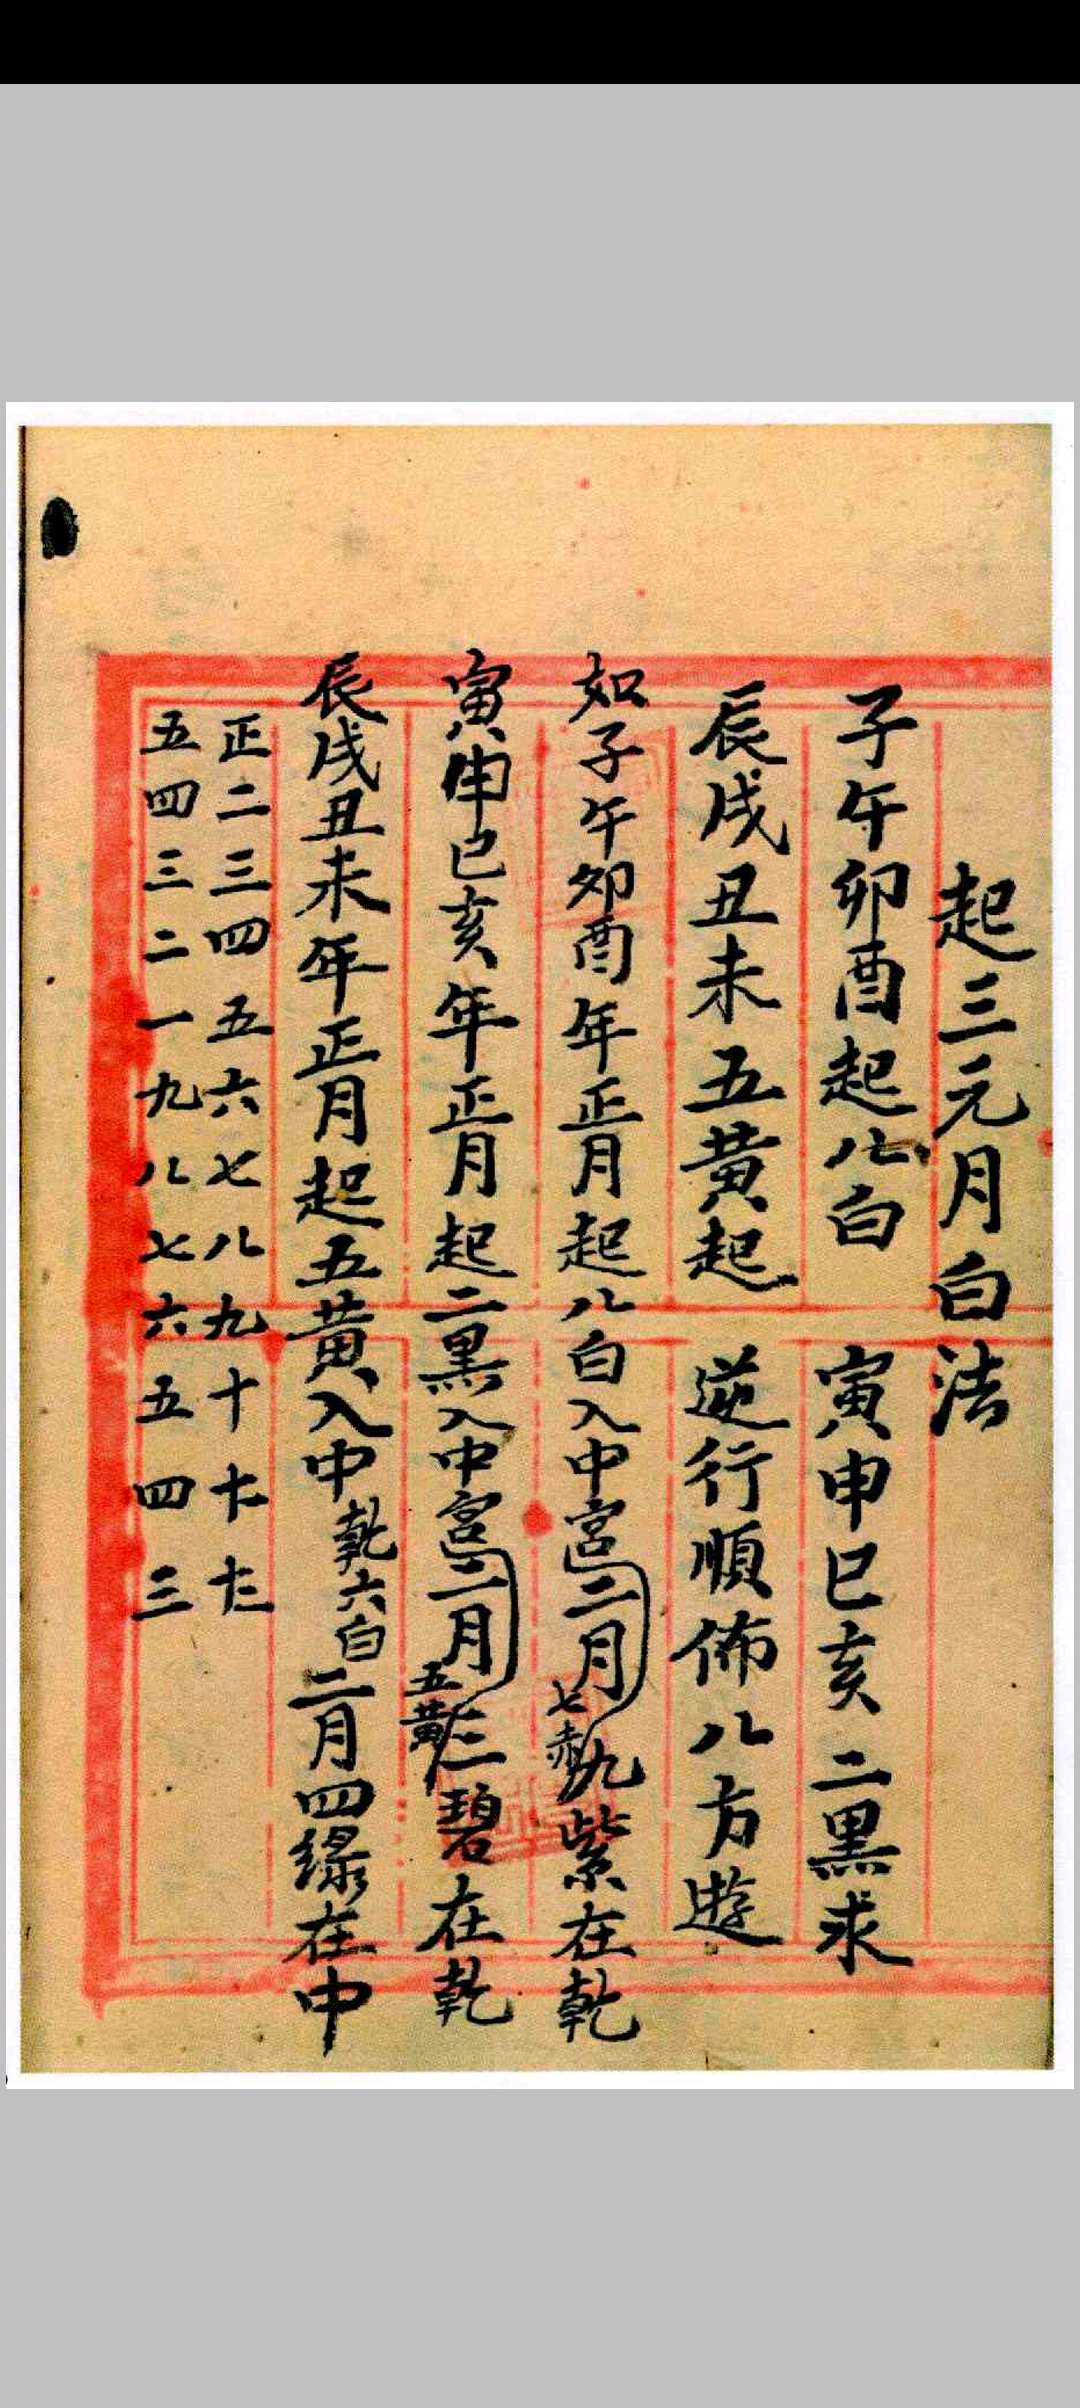 起三元月白法
子午卯酉起八白　寅申巳亥二黑求
辰戌丑未五黄起　逆行順佈八方遊
如子午卯酉年正月起八白入中宮二月七赤九紫在乾
寅申巳亥年正月起二黑入中宮二月五黄三碧在乾
辰戌丑未年正月起五黄入中乾六白二月四緑在中
正二三四五六七八九十十一十二
五四三二一九八七六五四三